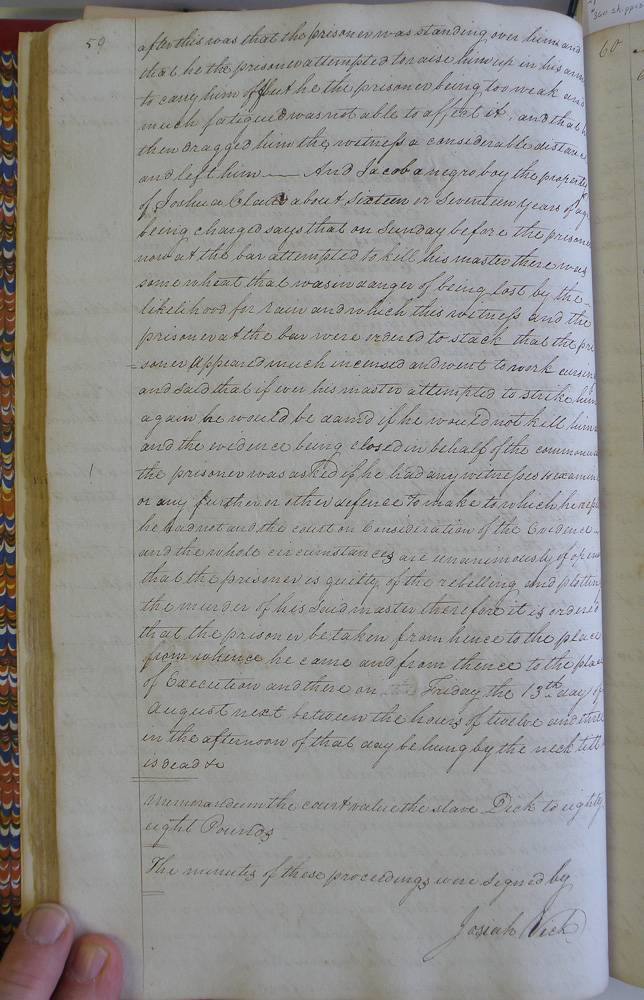 59
after this was that the prisoner was standing over him and
that he the prisoner attempted to raise him up in his arms
to carry him off but he the prisoner being too weak and
much fatigued was not able to affect it, and that he
then dragged him the witness a considerable distance
and left him — And Jacob a negro boy the property
of Joshua about sixteen or seventeen years of age
being charged says that on Sunday before the prisoner
now at the bar attempted to kill his master there was
some wheat that was in danger of being lost by the
likelihood for rain and which this witness and the
prisoner at the bar were ordered to stack that the pri
=soner appeared much incensed and went to work cursing
and said that if ever his master attempted to strike him
again he would be damd if he would not kill him
and the evidence being closed in behalf of the commonw
the prisoner was asked if he had any witnesses to examine
or any further or other defence to make to which he repli
he had not and the court on Consideration of the Evidence
and the whole circumstances are unanimously of opin
that the prisoner is guilty of the rebelling and plotting
the murder of his said master therefore it is ordered
that the prisoner be taken from hence to the place
from whence he came and from thence to the place
of Execution and there on Friday the 13th day of
August next between the hours of twelve and three
in the afternoon of that day be hung by the neck till
is dead &c
Memorandum the court value the slave Dick to eighty
eight Pounds
The minutes of these proceedings were signed by
Josiah Vick
60